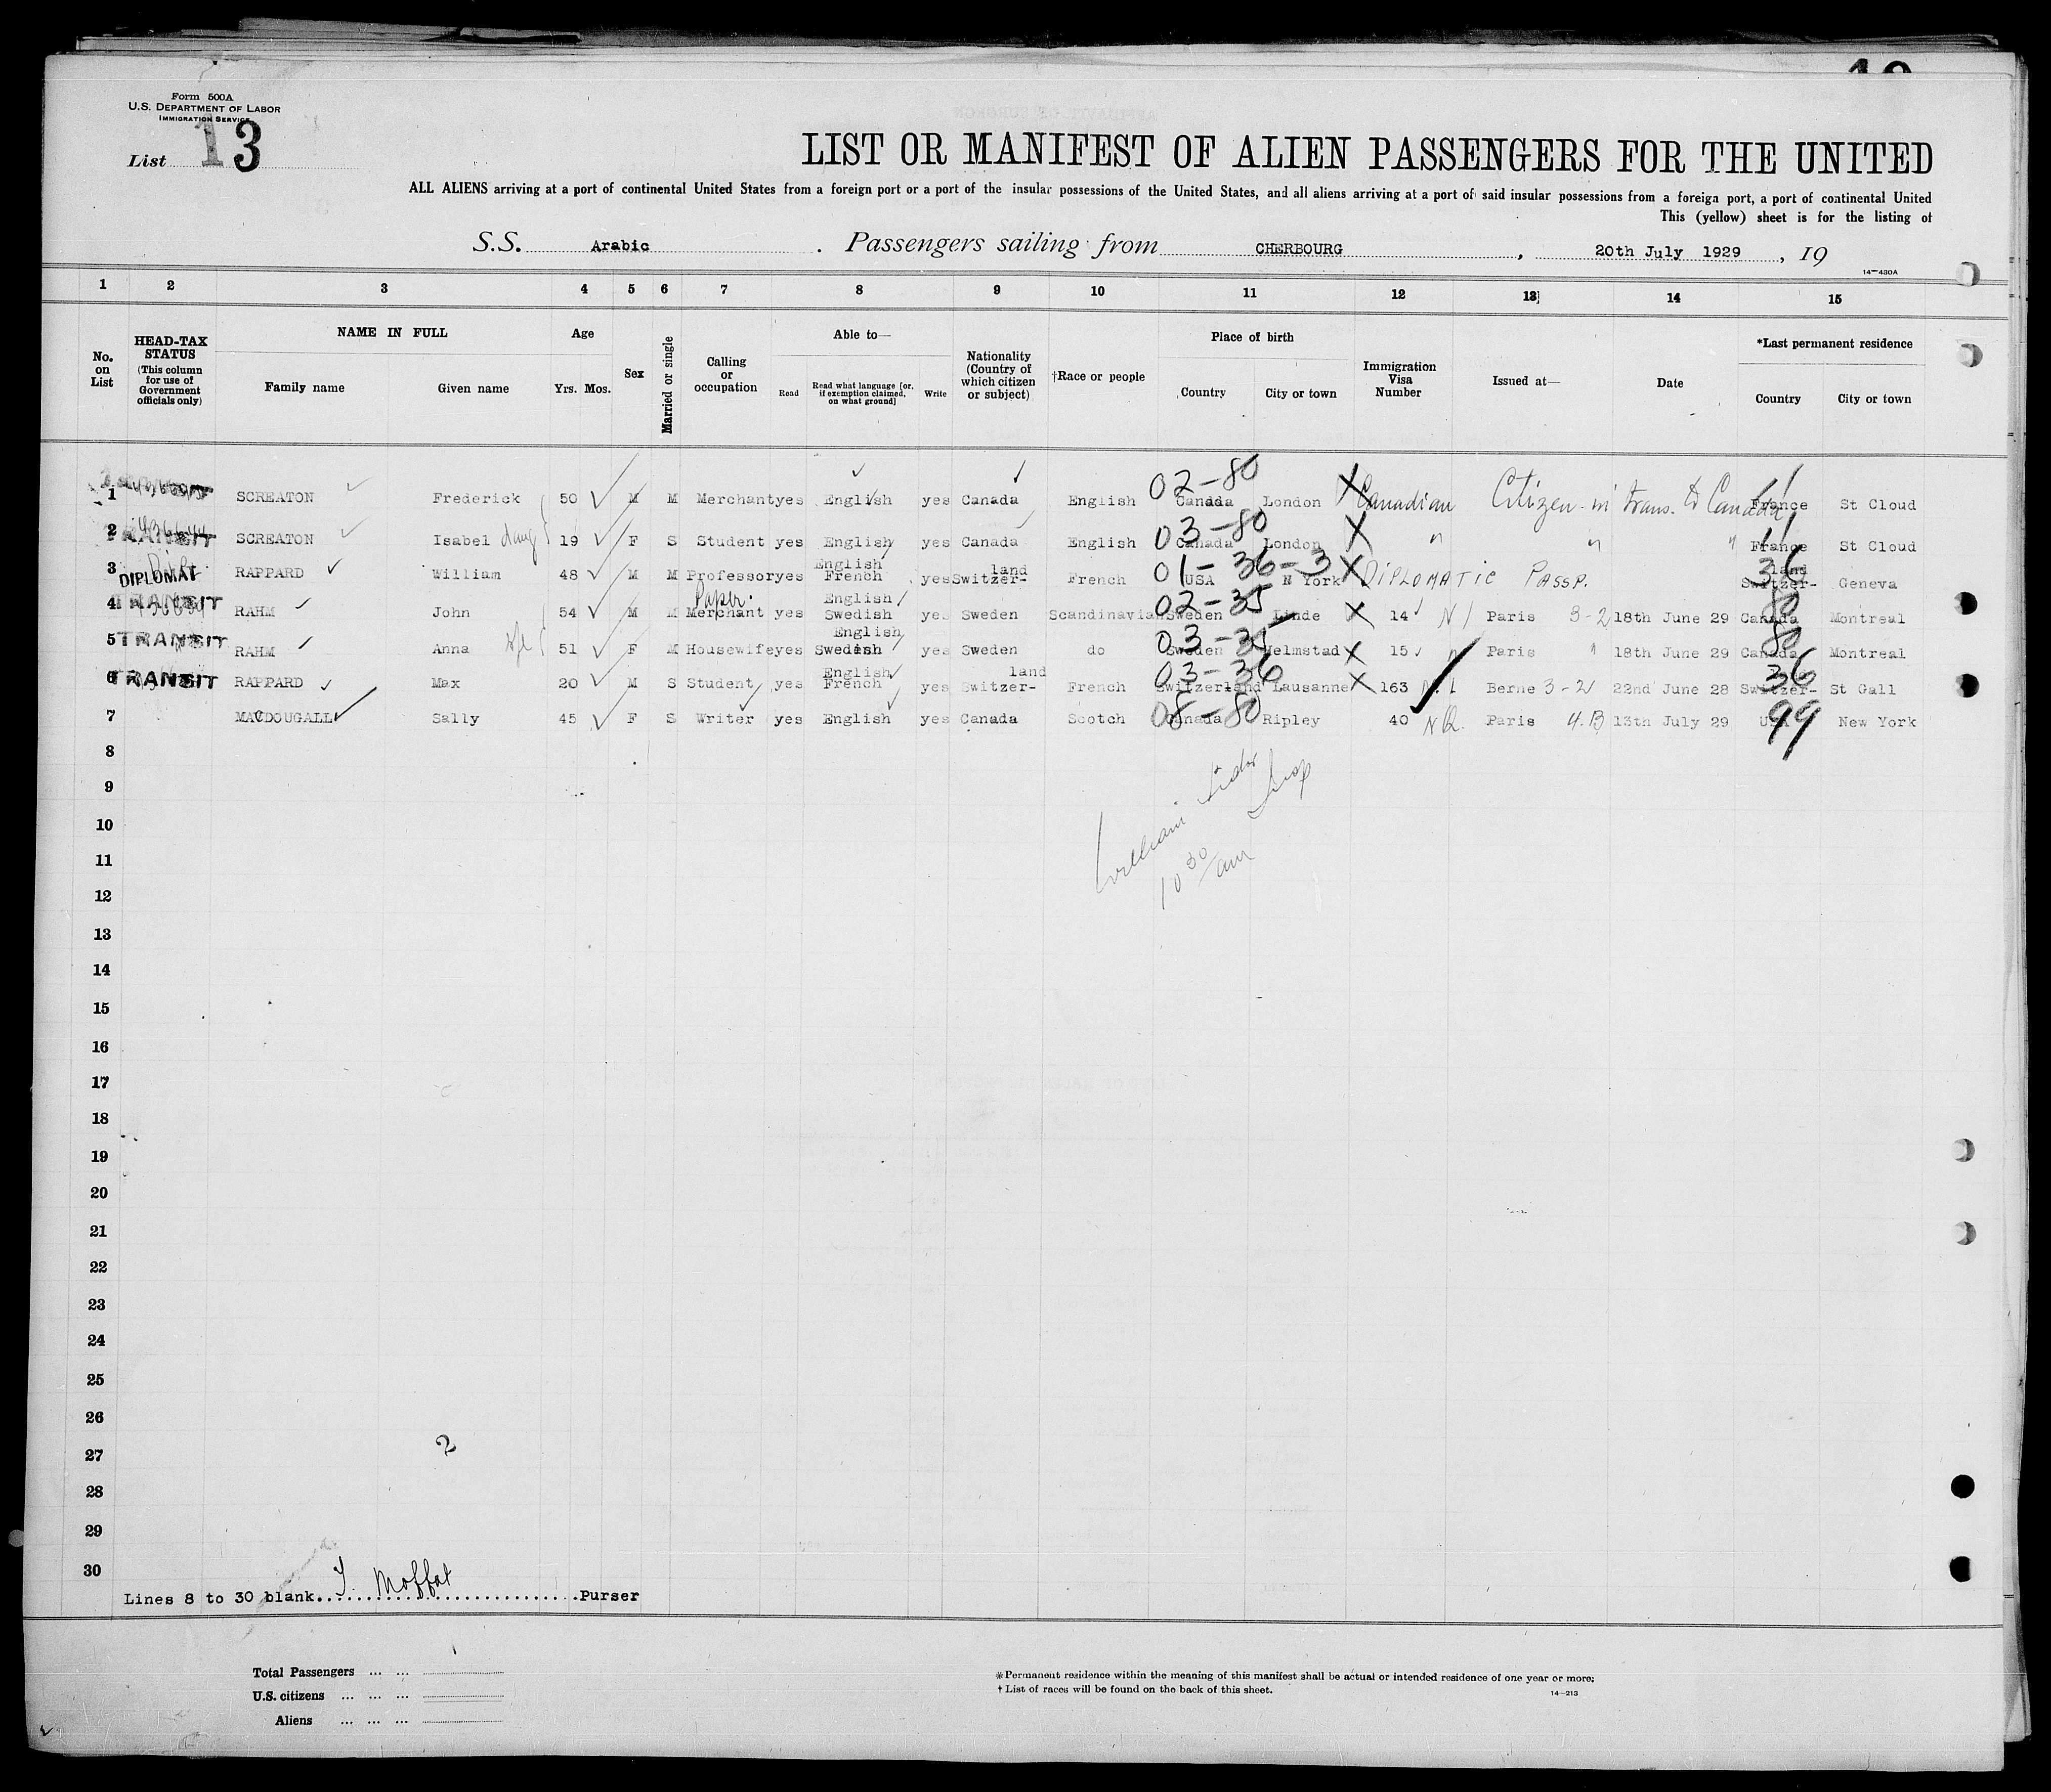 Form 500A
U.S. DEPARTMENT OF LABOR
IMMIGRATION SERVICE
List 13
LIST OR MANIFEST OF ALIEN PASSENGERS FOR THE UNITED
ALL ALIENS arriving at a port of continental United States from a foreign port or a port of the insular possessions of the United States, and all aliens arriving at a port of said insular possessions from a foreign port, a port of continental United
This (yellow) sheet is for the listing of
S.S. Arabic . Passengers sailing from CHERBOURG , 20th July 1929 , 19
14—430A
1 2 3 4 5 6 7 8 9 10 11 12 13 14 15
No. on List
HEAD-TAX STATUS (This column for use of Government officials only)
NAME IN FULL
Family name Given name
Age
Yrs. Mos.
Sex
Married or single
Calling or occupation
Able to—
Read Read what language [or, if exemption claimed, on what ground] Write
Nationality (Country of which citizen or subject)
†Race or people
Place of birth
Country City or town
Immigration Visa Number
Issued at—
Date
*Last permanent residence
Country City or town
1 SCREATON Frederick 50 M M Merchant yes English yes Canada English 02-80 Canada London X Canadian Citizen in trans. to Canada France St Cloud
2 TRANSIT SCREATON Isabel daug 19 F S Student yes English yes Canada English 03-80 Canada London X " " " France St Cloud
3 DIPLOMAT RAPPARD William 48 M M Professor yes English French yes Switzer-land French 01-36-3 USA N York X DIPLOMATIC PASSP. 36 Switzer-land Geneva
4 TRANSIT RAHM John 54 M M Paper Merchant yes English Swedish yes Sweden Scandinavian 02-35 Sweden Linde X 14 N1 Paris 3-2 18th June 29 80 Canada Montreal
5 TRANSIT RAHM Anna 51 F M Housewife yes English Swedish yes Sweden do 03-35 Sweden Helmstad X 15 " Paris " 18th June 29 80 Canada Montreal
6 TRANSIT RAPPARD Max 20 M S Student yes English French yes Switzer-land French 03-36 Switzerland Lausanne X 163 Berne 3-2 22nd June 28 36 Switzer- St Gall
7 MACDOUGALL Sally 45 F S Writer yes English yes Canada Scotch 08-80 Canada Ripley 40 NQ. Paris 4.B 13th July 29 99 USA New York
8
William
9
10
10 30/am
11
12
13
14
15
16
17
18
19
20
21
22
23
24
25
26
27 2
28
29
30
Lines 8 to 30 blank. T. Moffat Purser
Total Passengers ... ...
U.S. citizens ... ... ...
Aliens ... ... ...
*Permanent residence within the meaning of this manifest shall be actual or intended residence of one year or more;
† List of races will be found on the back of this sheet.
14—213